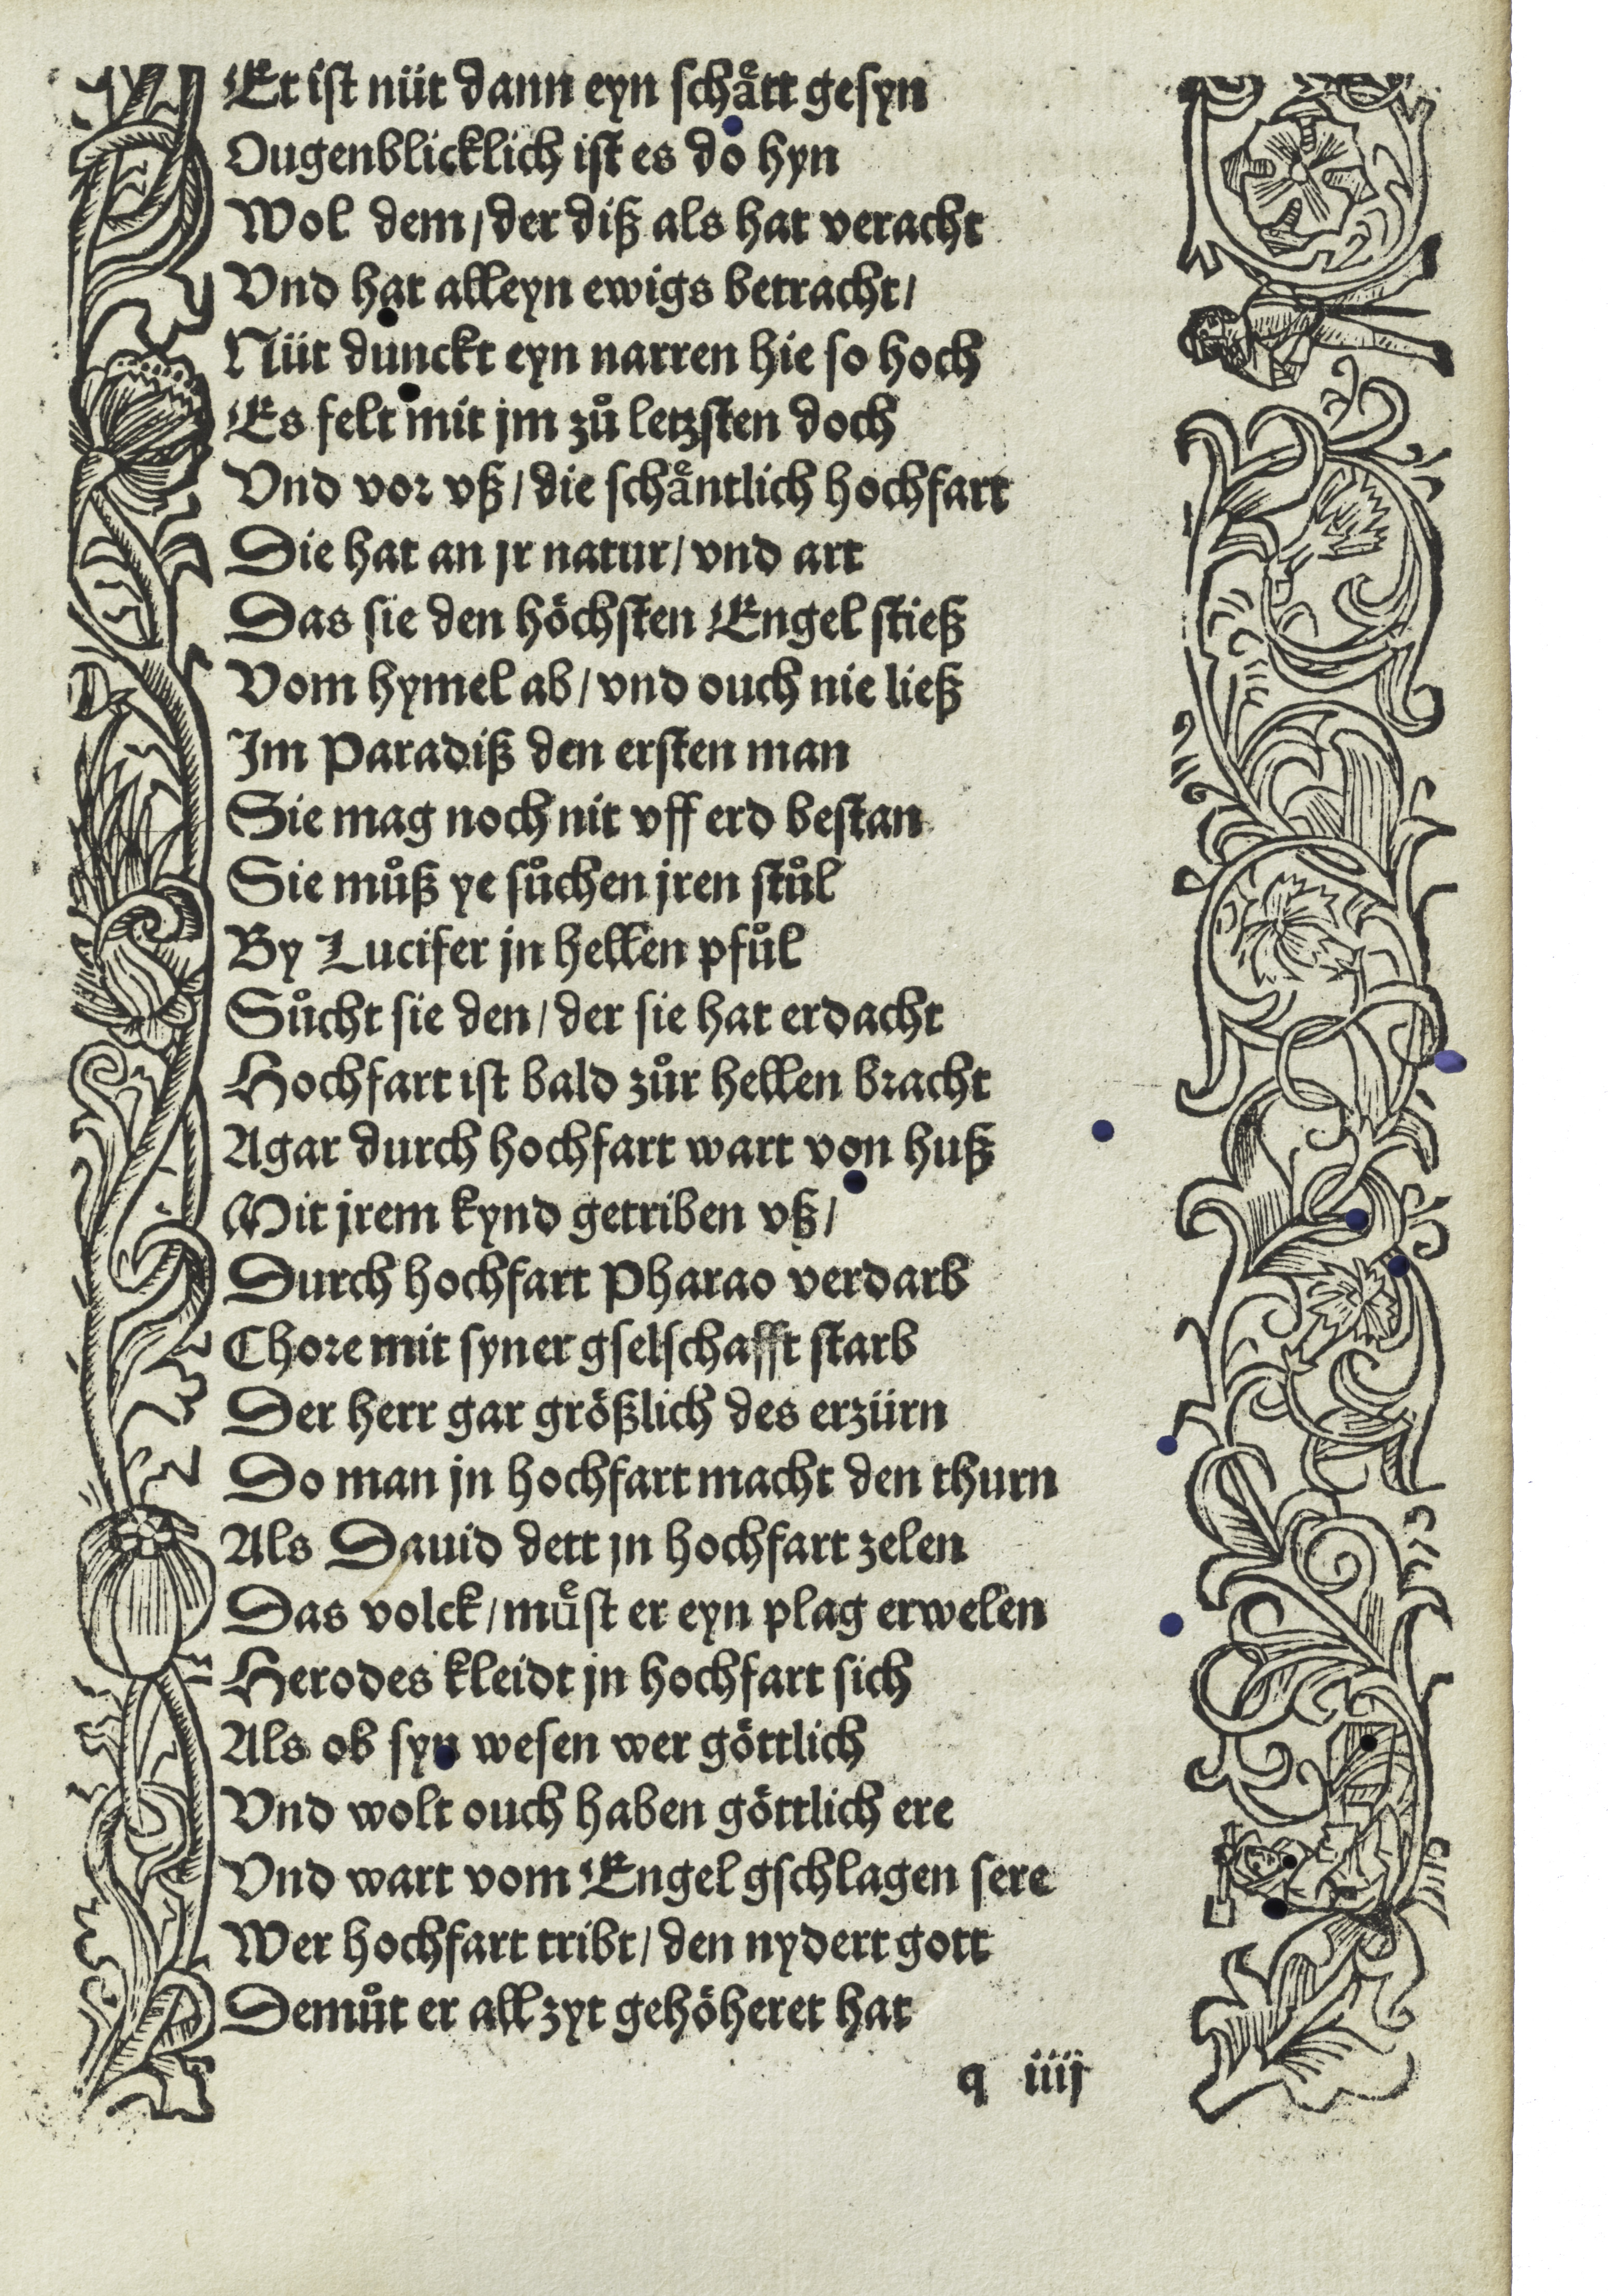 Er ist nüt dann eyn schaͤtt gesyn
Ougenblicklich ist es do hyn
Wol dem / der diß als hat veracht
Vnd hat alleyn ewigs betracht /
Nüt dunckt eyn narren hie so hoch
Es felt mit jm zuͦ letzsten doch
Vnd vor vß / die schaͤntlich hochfart
Die hat an jr natur / vnd art
Das sie den höchsten Engel stieß
Vom hymel ab / vnd ouch nie ließ
Im Paradiß den ersten man
Sie mag noch nit vff erd bestan
Sie muͦß ye suͦchen jren stuͦl
By Lucifer jn hellen pfuͦl
Suͦcht sie den / der sie hat erdacht
Hochfart ist bald zuͦr hellen bracht
Agar durch hochfart wart von huß
Mit jrem kynd getriben vß /
Durch hochfart Pharao verdarb
Chore mit syner gselschafft starb
Der herr gar größlich des erzürn
Do man jn hochfart macht den thurn
Als Dauid dett jn hochfart zelen
Das volck / muͤst er eyn plag erwelen
Herodes kleidt jn hochfart sich
Als ob syn wesen wer göttlich
Vnd wolt ouch haben göttlich ere
Vnd wart vom Engel gschlagen sere
Wer hochfart tribt / den nydert gott
Demuͦt er all zyt gehöheret hat
q iiij